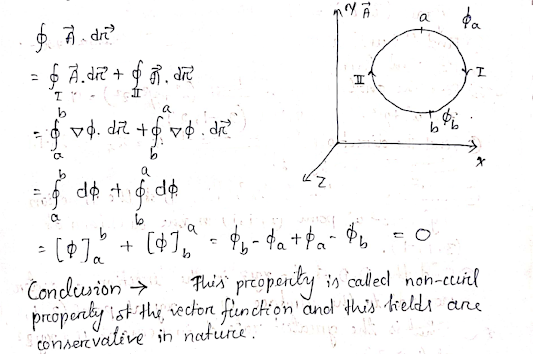 ∮ A⃗. dr⃗
= ∮_I A⃗.dr⃗ + ∮_II A⃗. dr⃗
= ∮_a^b ∇ϕ. dr⃗ + ∮_b^a ∇ϕ. dr⃗
= ∮_a^b dϕ + ∮_b^a dϕ
= [ϕ]_a^b + [ϕ]_b^a = ϕ_b - ϕ_a + ϕ_a - ϕ_b = 0
Y A⃗
a ϕ_a
II I
b ϕ_b
X
Z
Conclusion → This property is called non-curl
property of the vector function and this fields are
conservative in nature.